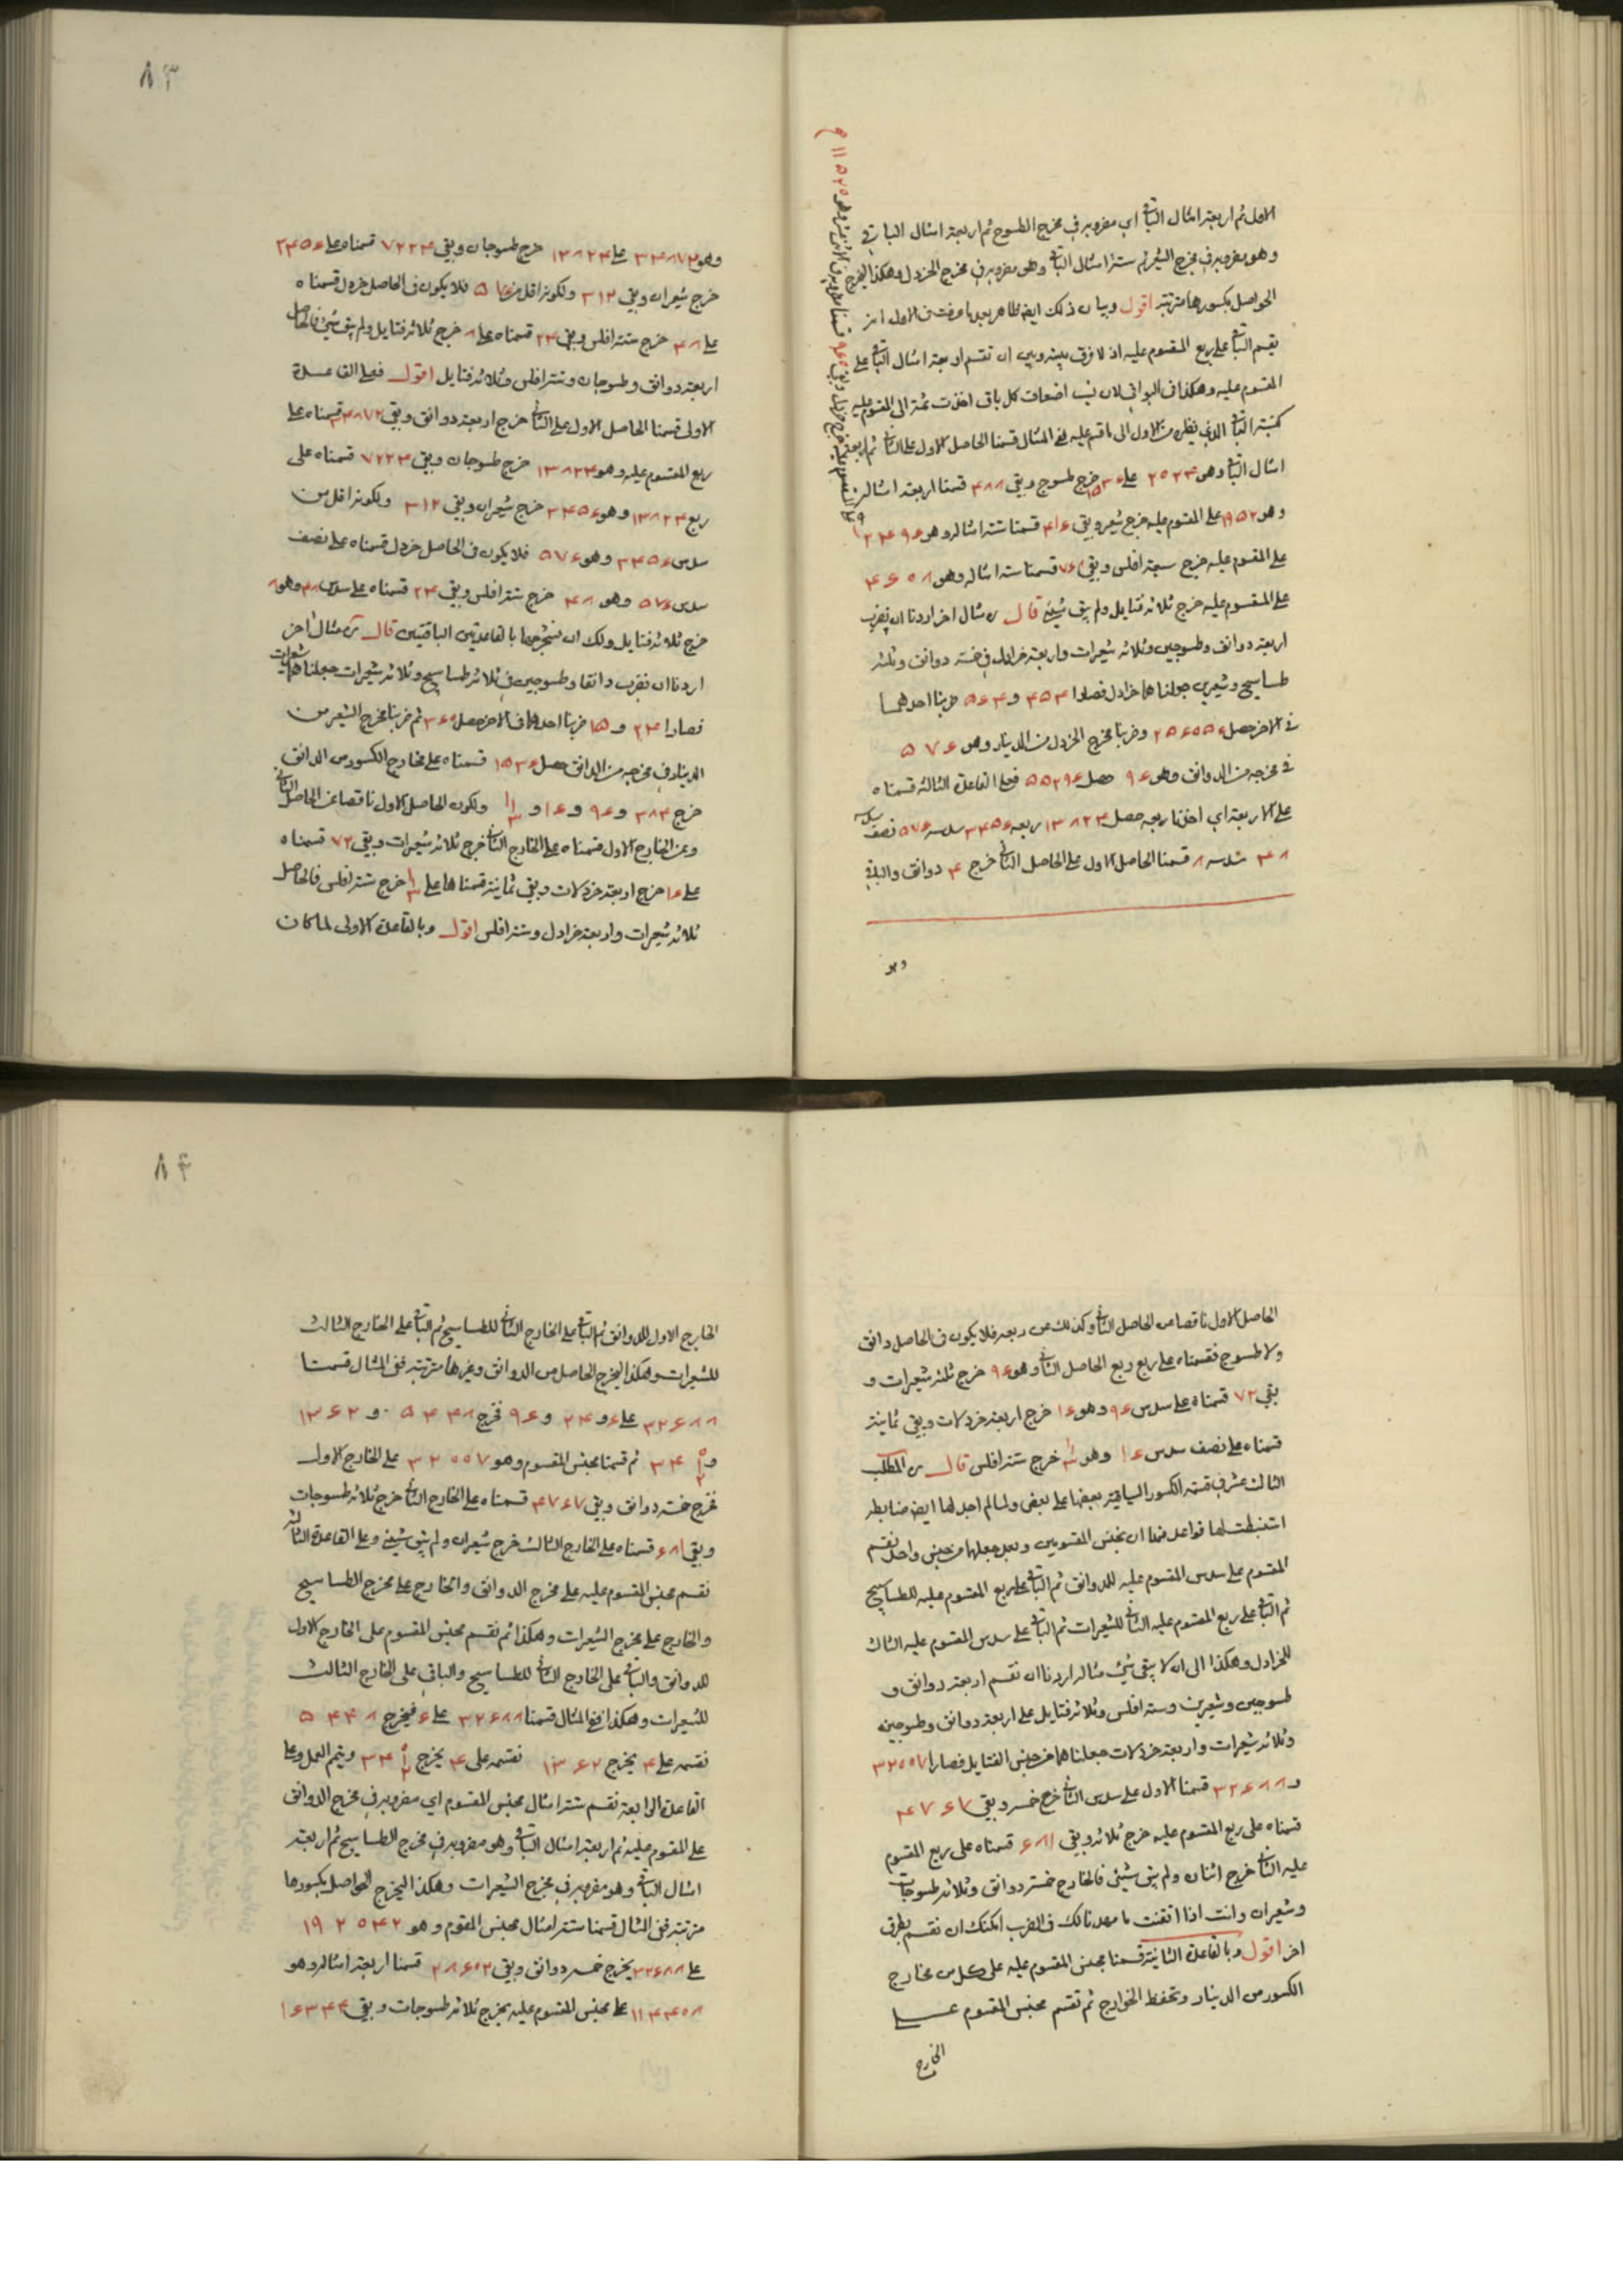 الاول ثم اربعة امثال الباقى اى مضروبه فى مخرج الطسوج ثم اربعة امثال الباقى
وهو مضروبه فى مخرج الشعير ثم ستة امثال الباقى وهو مضروبه فى مخرج الخردل وهكذا ليخرج
الحواصل بكسورها مترتبة اقول وبيان ذلك ايضا ظاهر بعد ما عرفت فى الاول اذ
يقسم الباقى على ربع المقسوم عليه اذ لا فرق بينه وبين ان تقسم اربعة امثال الباقى على
المقسوم عليه وهكذا فى البواقى لان نسب اضعاف كل باق اخذت ثمة الى المقسوم عليه
كنسبة الباقى الذى نظيره من الاول الى ما قسم عليه ففى المثال قسمنا الحاصل الاول على الثانى ثم اربعة
امثال الباقى وهو على خرج طسوج وبقى ۴۸۸ قسمنا اربعة امثاله
وهو ۱۹۵۲ على المقسوم عليه خرج شعير وبقى ۴۱۶ قسمنا ستة امثاله وهو ۲۴۹۶
على المقسوم عليه خرج سبعة افلس وبقى ۷۶۸ قسمنا ستة امثاله وهو ۴۶۰۸
على المقسوم عليه خرج ثلاثة فتايل ولم يبق شيئ قال ره مثال اخر اردنا ان نضرب
اربعة دوانق وطسوجين وثلاثة شعيرات واربعة خرادل فى خمسة دوانق وثلثة
طساسيج وشعيرين جعلناهما خرادل فصارا ۴۵۴ و ۵۶۴ ضربنا احدهما
فى الاخر حصل ۲۵۶۰۵۶ وضربنا مخرج الخردل من الدينار وهو ۵۷۶
فى مخرجه من الدوانق وهو ۹۶ حصل ۵۵۲۹۶ فعلى القاعدة الثالثة قسمناه
على الاربعة اى اخذنا ربعه حصل ۱۳۸۲۴ ربعه ۳۴۵۶ سدسه ۵۷۶ نصف سدسه
۴۸ سدسه ۸ قسمنا الحاصل الاول على الحاصل الثانى خرج ۴ دوانق والباقى
وهو
۸۳
وهو ۳۴۸۷۲ على ۱۳۸۲۴ خرج طسوجان وبقى ۷۲۲۴ قسمناه على ۳۴۵۶
خرج شعيران وبقى ۳۱۲ ولكونه اقل من ۵۷۶ فلا يكون فى الحاصل خردل قسمناه
على ۴۸ خرج ستة افلس وبقى ۲۴ قسمناه على ۸ خرج ثلاثة فتايل ولم يبق شيئ فالحاصل
اربعة دوانق وطسوجان وستة افلس وثلاثة فتايل اقول فعلى القاعدة
الاولى قسمنا الحاصل الاول على الثانى خرج اربعة دوانق وبقى ۳۴۸۷۲ قسمناه على
ربع المقسوم عليه وهو ۱۳۸۲۴ خرج طسوجان وبقى ۷۲۲۴ قسمناه على
ربع ۱۳۸۲۴ وهو ۳۴۵۶ خرج شعيران وبقى ۳۱۲ ولكونه اقل من
سدس ۳۴۵۶ وهو ۵۷۶ فلا يكون فى الحاصل خردل قسمناه على نصف
سدس ۵۷۶ وهو ۴۸ خرج ستة افلس وبقى ۲۴ قسمناه على سدس ۴۸ وهو ۸
خرج ثلاثة فتايل ولك ان تستخرجها بالقاعدتين الباقيتين قال ره مثال اخر
اردنا ان نضرب دانقا وطسوجين فى ثلاثة طساسيج وثلاثة شعيرات جعلناهما شعيرات
فصارا ۲۴ و ۱۵ ضربنا احدهما فى الاخر حصل ۳۶۰ ثم ضربنا مخرج الشعير من
الدينار فى مخرجه من الدانق حصل ۱۵۳۶ قسمناه على مخارج الكسور من الدانق
خرج ۳۸۴ و ۹۶ و ۱۶ و ولكون الحاصل الاول ناقصا عن الحاصل الثانى
وعن الخارج الاول قسمناه على الخارج الثانى خرج ثلاثة شعيرات وبقى ۷۲ قسمناه
على ۱۶ خرج اربعة خردلات وبقى ثمانية قسمناها على خرج ستة افلس فالحاصل
ثلاثة شعيرات واربعة خرادل وستة افلس اقول وبالقاعدة الاولى لما كان
الحاصل الاول ناقصا من الحاصل الثانى وكذلك من ربعه فلا يكون فى الحاصل دانق
ولا طسوج فقسمناه على ربع ربع الحاصل الثانى وهو ۹۶ خرج ثلثة شعيرات و
بقى ۷۲ قسمناه على سدس ۹۶ وهو ۱۶ خرج اربعة خردلات وبقى ثمانية
قسمناه على نصف سدس ۱۶ وهو خرج ستة افلس قال ره المطلب
الثالث عشر فى قسمة الكسور السياقية بعضها على بعض ولما لم اجد لها ايضا ضابطة
استنبطت لها قواعد فمنها ان نجنس المقسومين وبعد جعلهما من جنس واحد نقسم
المقسوم على سدس المقسوم عليه للدوانق ثم الباقى على ربع المقسوم عليه للطساسيج
ثم الباقى على ربع المقسوم عليه الثانى للشعيرات ثم الباقى على سدس المقسوم عليه الثالث
للخرادل وهكذا الى ان لا يبقى شيئ مثاله اردنا ان نقسم اربعة دوانق و
طسوجين وشعيرين وستة افلس وثلاثة فتايل على اربعة دوانق وطسوجين
وثلاثة شعيرات واربعة خردلات جعلناهما من جنس الفتايل فصارا ۳۲۰۰۵۷
و ۳۲۶۸۸ قسمنا الاول على سدس الثانى خرج خمسه وبقى ۴۷۶۷
قسمناه على ربع المقسوم عليه خرج ثلاثه وبقى ۶۸۱ قسمناه على ربع المقسوم
عليه الثانى خرج اثنان ولم يبق شيئى فالخارج خمسة دوانق وثلاثة طسوجات
وشعيران وانت اذا اتقنت ما مهدنا لك فى الضرب امكنك ان نقسم بطرق
اخر اقول وبالقاعدة الثانية قسمنا مجنس المقسوم عليه على كل من مخارج
الكسور من الدينار وتحفظ الخوارج ثم تقسم مجنس المقسوم على
الخارج
۸۴
الخارج الاول للدوانق ثم الباقى على الخارج الثانى للطساسيج ثم الباقى على الخارج الثالث
للشعيرات وهكذا ليخرج الحاصل من الدوانق وغيرها مترتبة ففى المثال قسمنا
۳۲۶۸۸ على ۶ و ۲۴ و ۹۶ فخرج ۵۴۴۸ و ۱۳۶۲
و ثم قسمنا مجنس المقسوم وهو ۳۲۰۰۷ على الخارج الاول
فخرج خمسة دوانق وبقى ۴۷۶۷ قسمناه على الخارج الثانى خرج ثلاثة طسوجات
وبقى ۶۸۱ قسمناه على الخارج الثالث خرج شعيران ولم يبق شيئ وعلى القاعدة الثالثة
نقسم مجنس المقسوم عليه على مخرج الدوانق والخارج على مخرج الطساسيج
والخارج على مخرج الشعيرات وهكذا ثم نقسم مجنس المقسوم على الخارج الاول
للدوانق والباقى على الخارج الثانى للطساسيج والباقى على الخارج الثالث
للشعيرات وهكذا ففى المثال قسمنا ۳۲۶۸۸ على ۶ فيخرج ۵۴۴۸
نقسمه على ۴ يخرج ۱۳۶۲ نقسمه على ۴ يخرج ويتم العمل وعلى
القاعدة الرابعة نقسم ستة امثال مجنس المقسوم اى مضروبه فى مخرج الدوانق
على المقسوم عليه ثم اربعة امثال الباقى وهو مضروبه فى مخرج الطساسيج ثم اربعة
امثال الباقى وهو مضروبه فى مخرج الشعيرات وهكذا ليخرج الحواصل بكسورها
مترتبة ففى المثال قسمنا ستة امثال مجنس المقسوم وهو ۱۹۲۰۴۲
على ۳۲۶۸۸ يخرج خمسه دوانق وبقى ۲۸۶۰۲ قسمنا اربعة امثاله وهو
۱۱۴۴۰۸ على مجنس المقسوم عليه يخرج ثلاثة طسوجات وبقى ۱۶۳۴۴